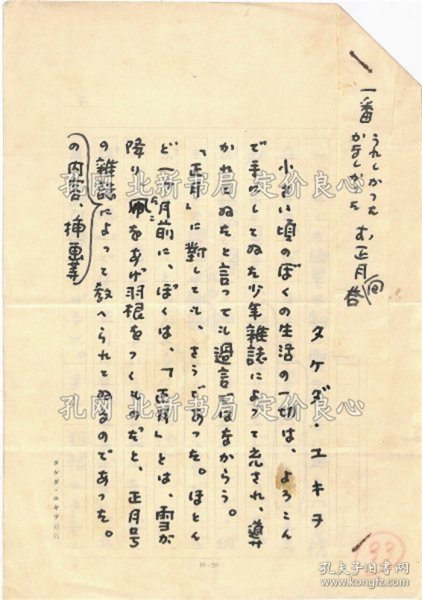 一番 うれしかった かなしかった お正月 回答
タケダ・ユキヲ
小さい頃のぼくの生活の一切は、よろこん
で手にしてゐた少年雑誌によって充され、導
かれてゐたと言っても過言ではなからう。
「正月」に對しても、さうであった。ほとん
ど一ヶ月前に、ぼくは、「正月」とは、雪が
降り凧をあげ羽根をつくものだと、正月号
の雑誌によって教へられてゐるのであった。
の内容、挿畫等
33
タケダ・ユキヲ用紙
10-20
孔网 北新书局 定价良心
孔网 北新书局 定价良心
孔网 北新书局 定价良心
孔夫子旧书网
www.kongfz.com